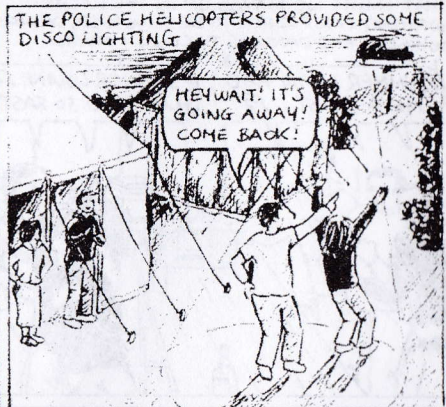 THE POLICE HELICOPTERS PROVIDED SOME
DISCO LIGHTING
HEY WAIT! IT'S
GOING AWAY!
COME BACK!